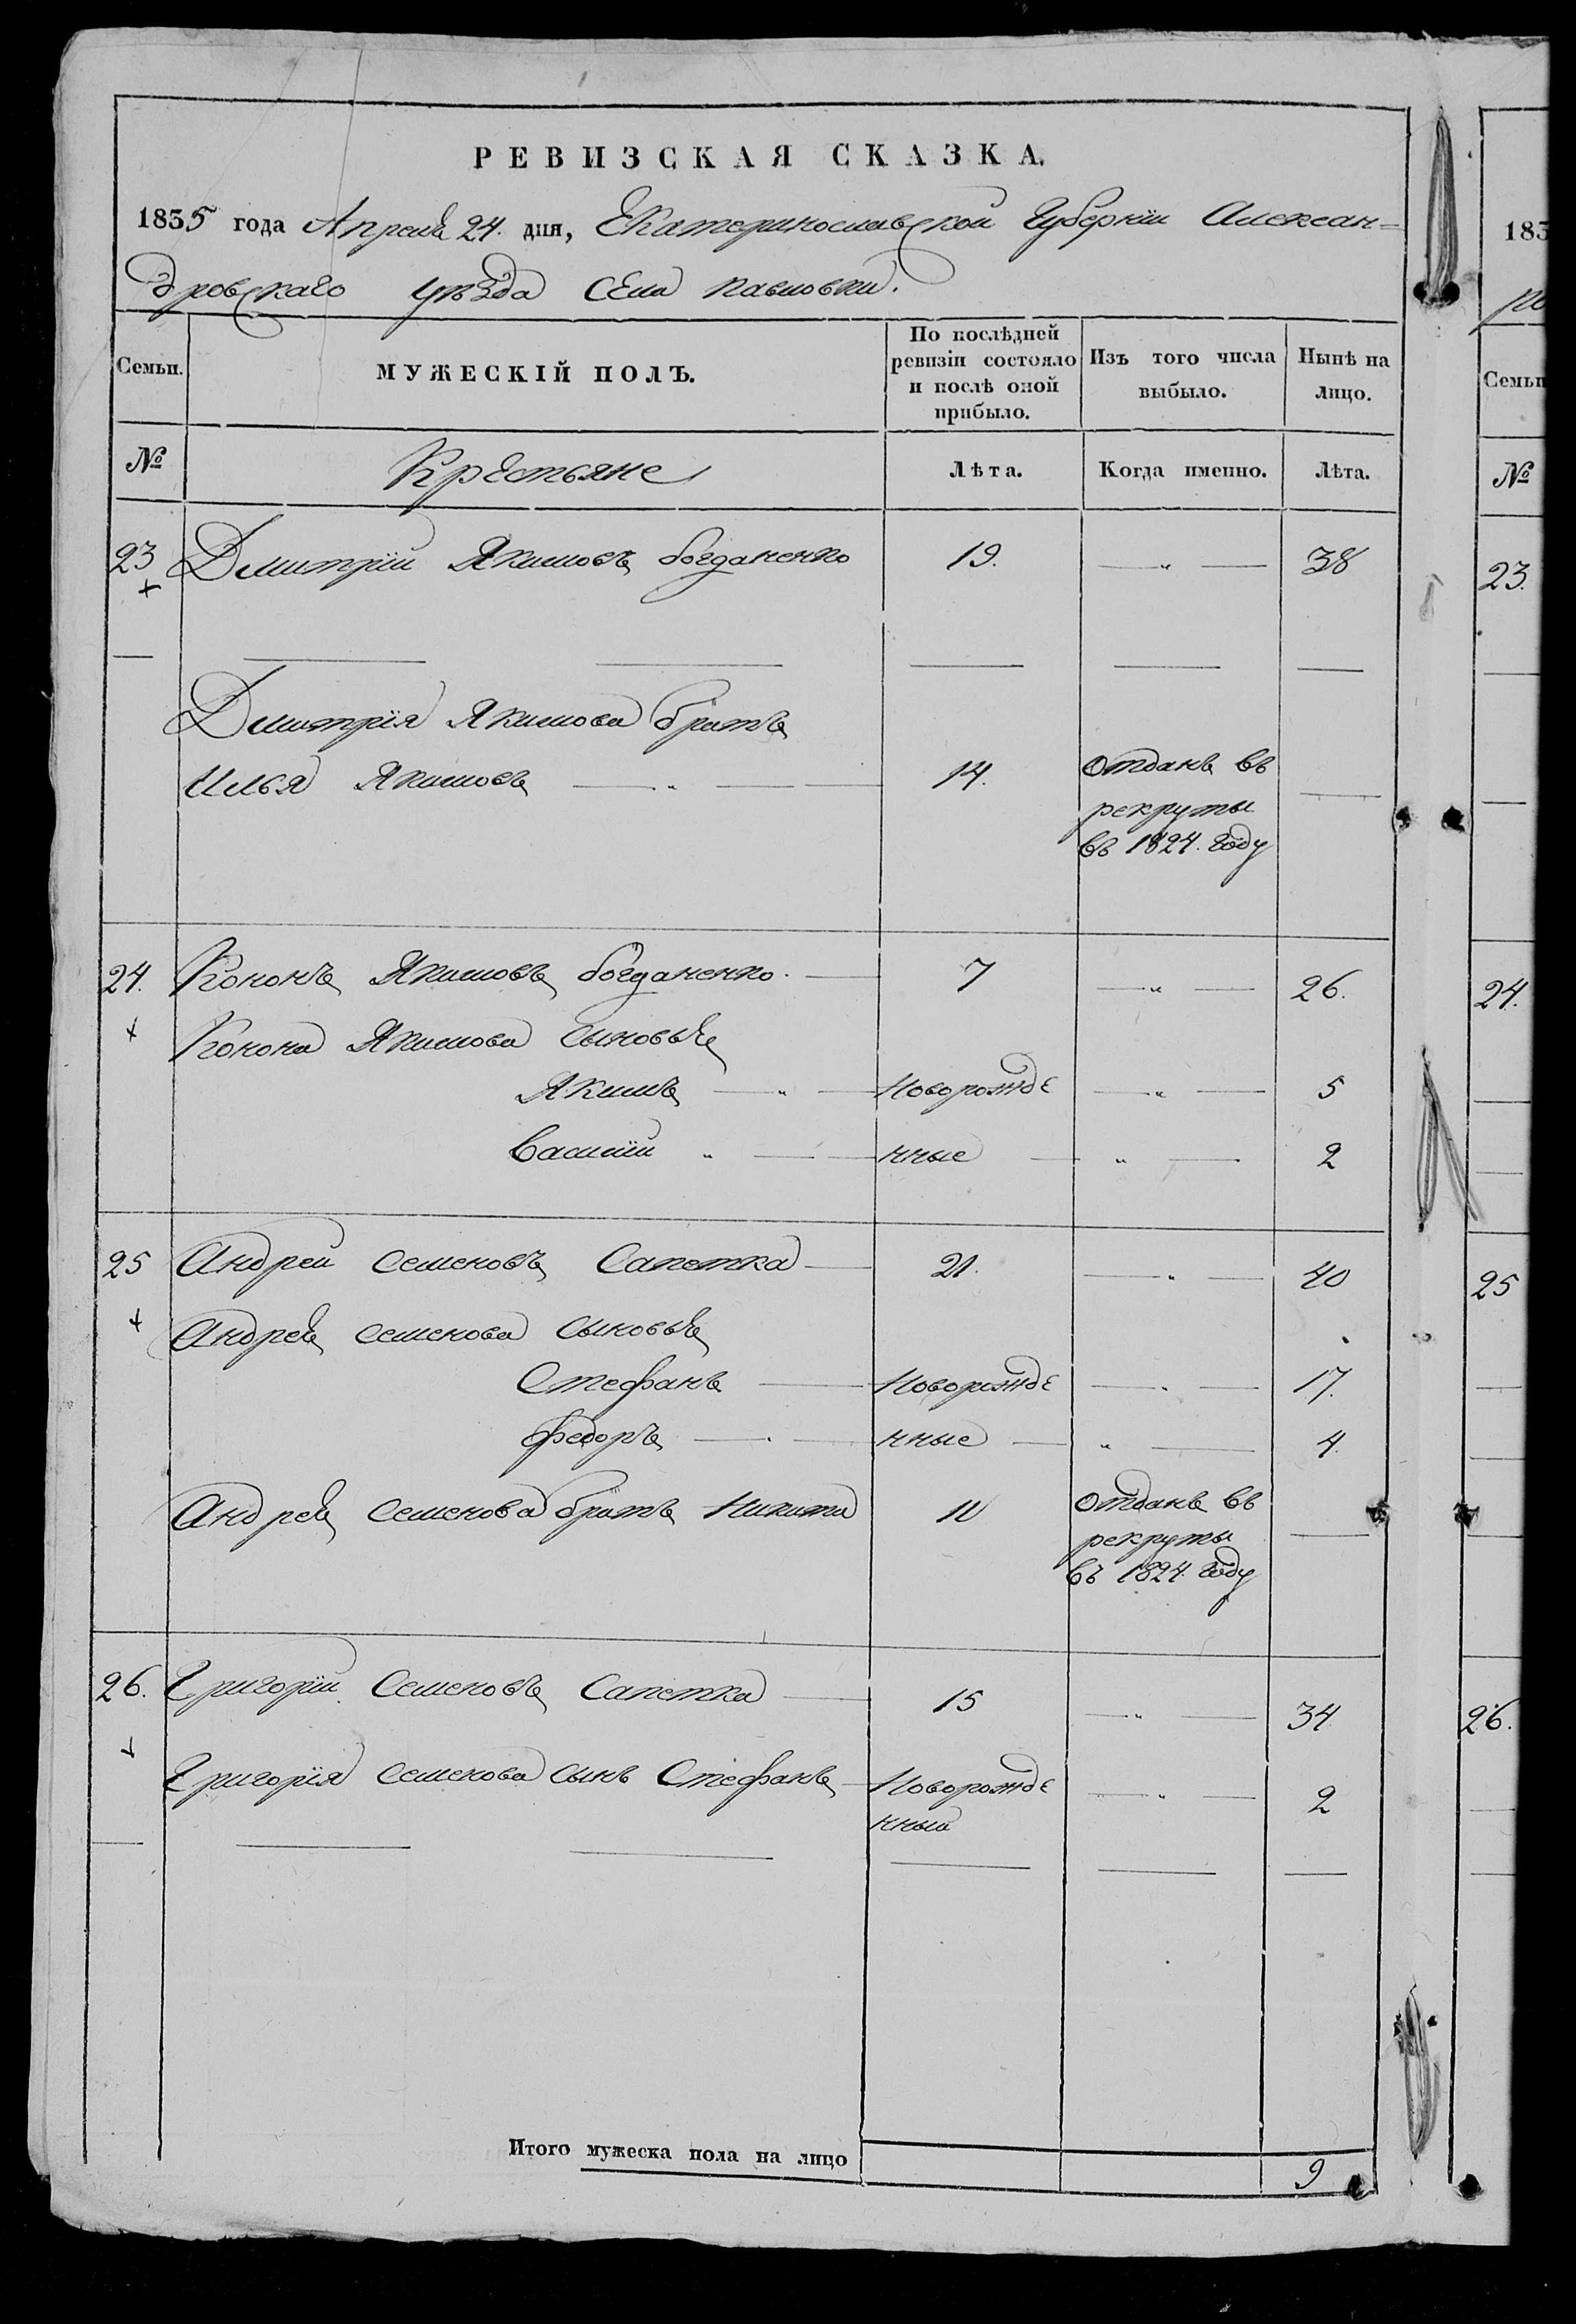 РЕВИЗСКАЯ СКАЗКА.
1835 года Апреля 24. дня, Екатеринославской Губернїи Алексан=
дровскаго уѣзда села павловки.
183
Семьи.
МУЖЕСКІЙ ПОЛЪ.
По послѣдней ревизіи состояло и послѣ оной прибыло.
Изъ того числа выбыло.
Нынѣ на лицо.
Семьи
№ Крестьяне Лѣта. Когда именно. Лѣта. №
23 Дмитрїй Якимовъ богданенко 19. — „ — 38 23.
Дмитрїя Якимова братъ
Илья Якимовъ — „ — 14. отданъ въ
рекруты
въ 1824. году
24. Кононъ Якимовъ богданенко. — 7 — „ — 26. 24.
Конона Якимова сыновья
Якимъ — „ — Новорожде — „ — 5
Василїй „ — нные — „ — 2
25 Андрей Семеновъ Сапетка — 21. — „ — 40 25
Андрея семенова сыновья
Стефанъ — Новорожде — „ — 17.
федоръ — „ — нные — „ — 4.
Андрея семенова братъ Никита 10 отданъ въ
рекруты
въ 1824. году
26. Григорїй Семеновъ Сапетка — 15 — „ — 34 26.
Григорїя семенова сынъ Стефанъ — Новорожде — „ — 2
нный
Итого мужеска пола на лицо 9